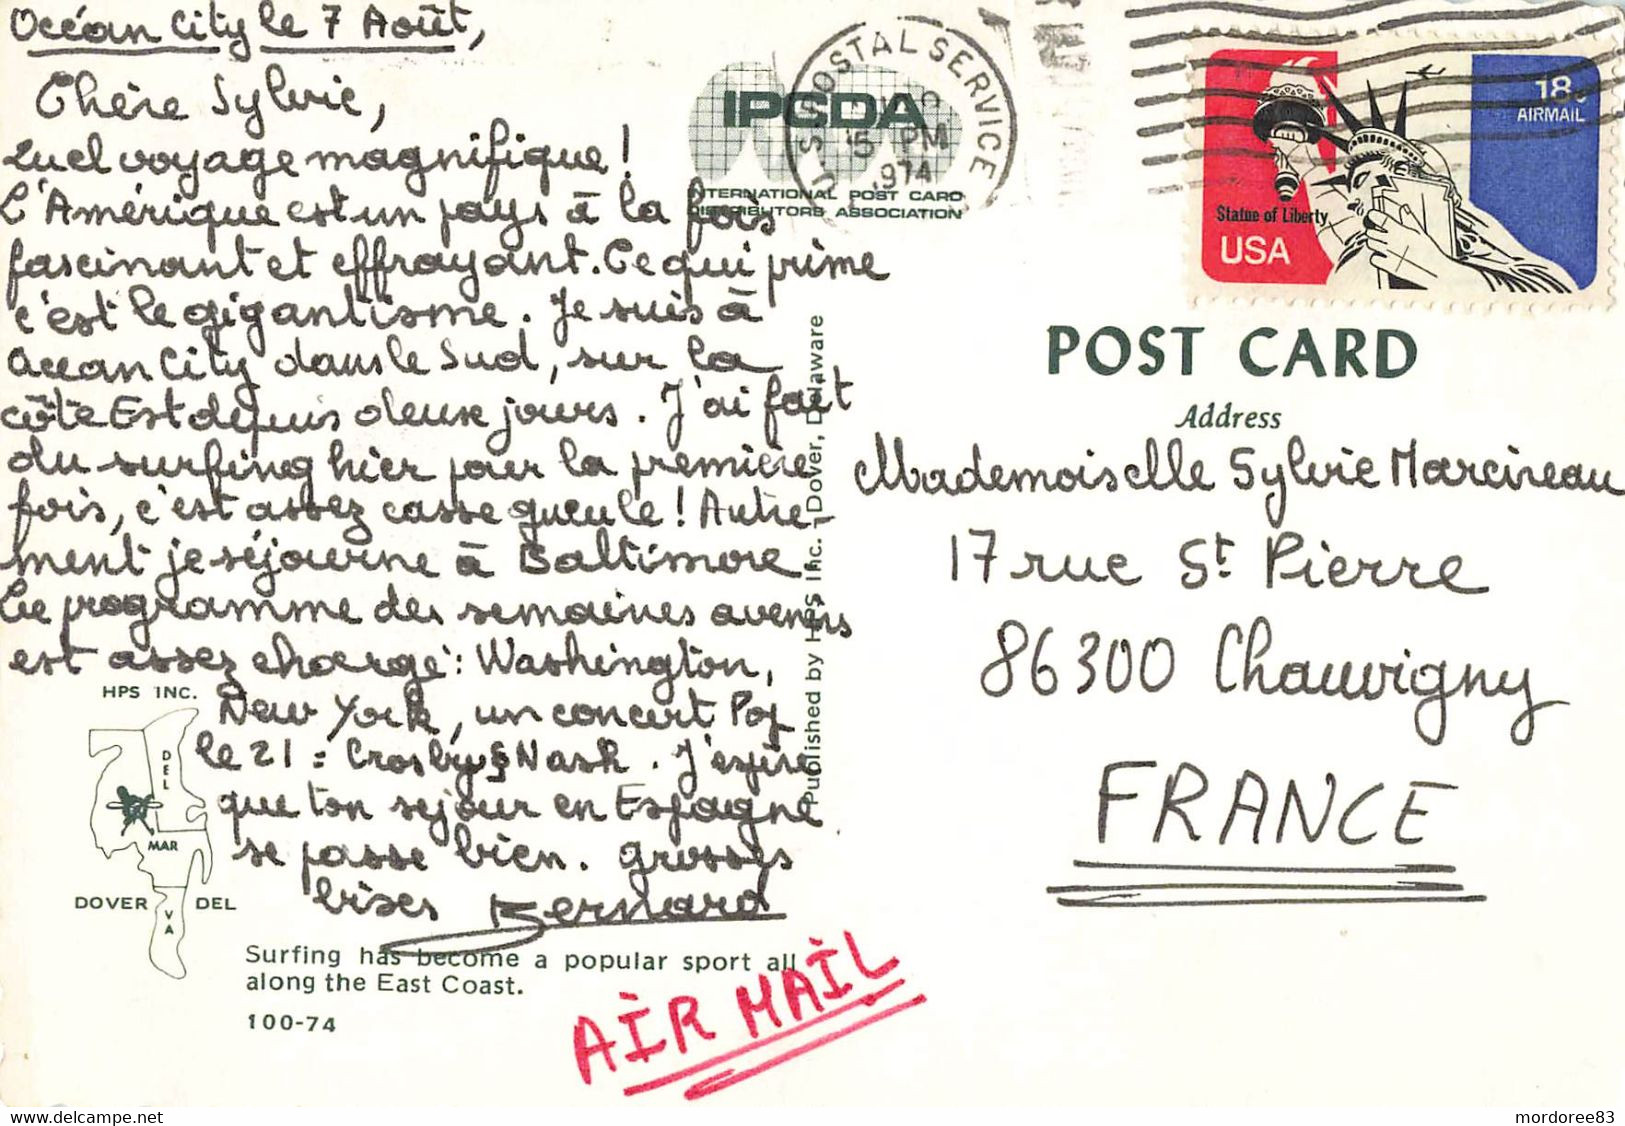 Océan City le 7 Août,
Chère Sylvie,
Quel voyage magnifique !
L'Amérique est un pays à la fois
fascinant et effrayant. Ce qui prime
c'est le gigantisme. Je suis à
Ocean City dans le Sud, sur la
côte Est depuis deux jours. J'ai fait
du surfing hier pour la première
fois, c'est assez casse gueule ! Autre-
ment je séjourne à Baltimore
Le programme des semaines avenirs
est assez chargé : Washington,
New York, un concert Pop
le 21 : Crosby & Nash. J'espère
que ton séjour en Espagne
se passe bien. Grosses
bises Bernard
HPS INC.
DEL
MAR
DOVER DEL
VA
Surfing has become a popular sport all
along the East Coast.
100-74
AIR MAIL
Published by HPS Inc. Dover, Delaware
IPCDA
INTERNATIONAL POST CARD
DISTRIBUTORS ASSOCIATION
U.S. POSTAL SERVICE
PM
1974
18c
AIRMAIL
Statue of Liberty
USA
POST CARD
Address
Mademoiselle Sylvie Marcireau
17 rue St Pierre
86300 Chauvigny
FRANCE
mordoree83